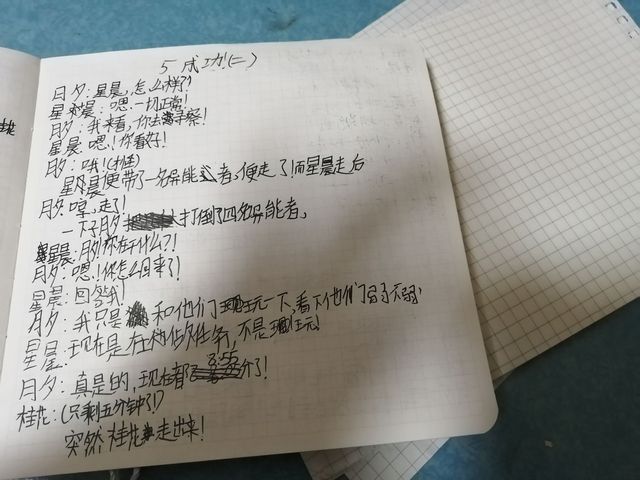 5 成功(二)
月夕:星晨,怎么样了?
星晨:嗯,一切正常!
月夕:我来看,你去寻察!
星晨:嗯!你看好!
月夕:哦!
星晨便带了一名异能者,便走了!而星晨走后
月夕:哼,走了!
一下子月夕打倒了四名异能者,
星晨:月夕!你在干什么?!
月夕:嗯!你怎么回来了!
星晨:回答我!
月夕:我只是和他们玩一下,看下他们弱不弱.
星晨:现在是在执行任务,不是玩!
月夕:真是的,现在都8:55分了!
桂先:(只剩五分钟了!)
突然,桂先走出来!